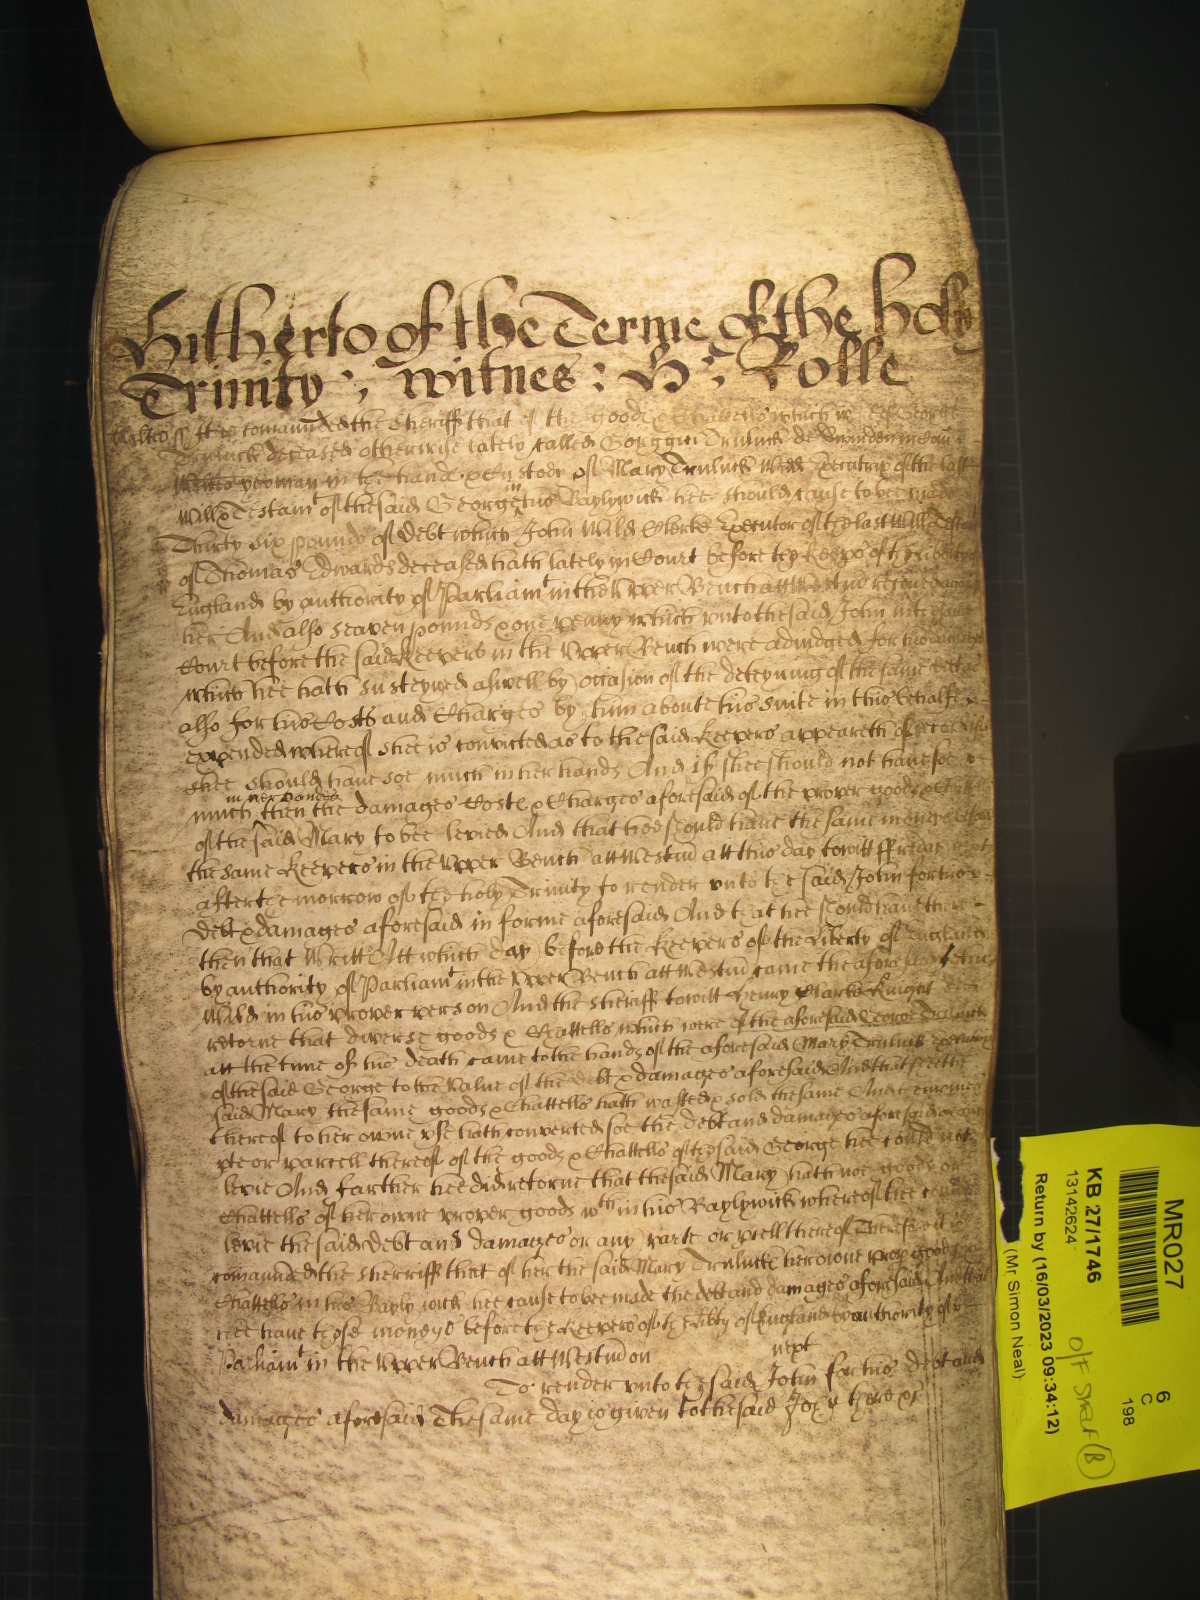 Hitherto of the Terme of the holy
Trinity ; witnes : H : Rolle
It is comaunded the Sheriff that of the goods & Chattells which were of George
Truluck deceased otherwise lately called Georgiu Truluck de in Com
yeoman in the hands & Custody of Mary Truluck Widd Executrix of the last
Will & Testamt of the said George in his Baylywick hee should cause to bee made
Thirty six pounds of debt which John Wild Clerke Executor of the last Will & Testamt
of Thomas Edwards deceased hath lately in Court before the Keepers of the Liberty of
England by authority of Parliamt in the Upper Bench att Westmr recovered against
her And also seaven pounds & one penny which unto the said John in the same
Court before the said Keepers in the Upper Bench were adiudged for his damages
which hee hath susteyned aswell by occasion of the deteyning of the same debt as
also for his Costs and Charges by him about his suite in this behalfe
expended whereof shee is convicted as to the said Keepers appeareth of record if
shee should have soe much in her hands And if shee should not have soe
much in her hands then the damages Costs & Charges aforesaid of the proper goods & Chattells
of the said Mary to bee levied And that hee should have the same moneys before
the same Keepers in the Upper Bench att Westmr att this day towitt ffriday next
after the morrow of the holy Trinity to render unto the said John for his
debt & damages aforesaid in forme aforesaid And that hee should have there
then that Writt Att which day before the Keepers of the Liberty of England
by authority of Parliamt in the Upper Bench att Westmr came the aforesaid John
Wild in his proper person And the Sheriff towitt Henry Clarke Knight did
retorne that diverse goods & Chattells which were of the aforesaid George Truluck
att the time of his death came to the hands of the aforesaid Mary Truluck Executrix
of the said George to the value of the debt & damages aforesaid And that shee the
said Mary the same goods & Chattells hath wasted & sold the same And the moneyes
thereof to her owne use hath converted soe the debt and damages aforesaid or any
pte or parcell thereof of the goods & Chattells of the said George hee could not
levie And further hee did retorne that the said Mary hath noe goods or
Chattells of her owne proper goods wthin his Baylywick whereof hee could
levie the said debt and damages or any parte or pcell thereof Therefore it is
comaunded the Sherriff that of her the said Mary Truluck her owne proper goods &
Chattells in his Baylywick hee cause to bee made the debt and damages aforesaid And that
hee have those moneys before the Keepers of the Libty of England by authority of
Parliamt in the Upper Bench att Westmr on next
To render unto the said John for his debt and
damages aforesaid The same day is given to the said John there &c
MR027
KB 27/1746
13142624
Return by (16/03/2023 09:34:12)
(Mr Simon Neal)
6
C
198
B